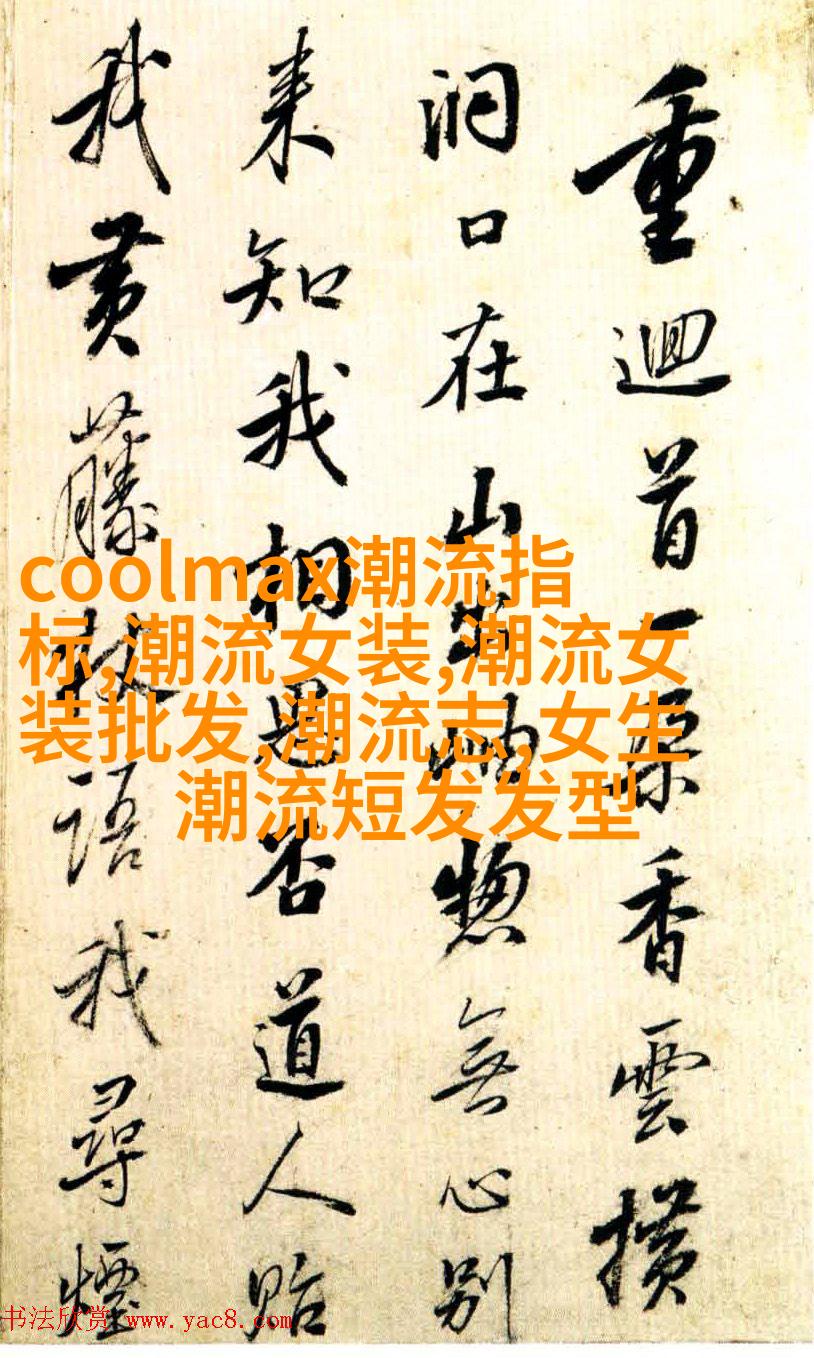 重迴首一香雲横
洞口在山出岫惣無心別
来知我相思否道人貽
我黄藤杖語我尋煙
coolmax潮流指
标,潮流女装,潮流女
装批发,潮流志,女生
潮流短发发型
书法欣赏 www.yac8.com